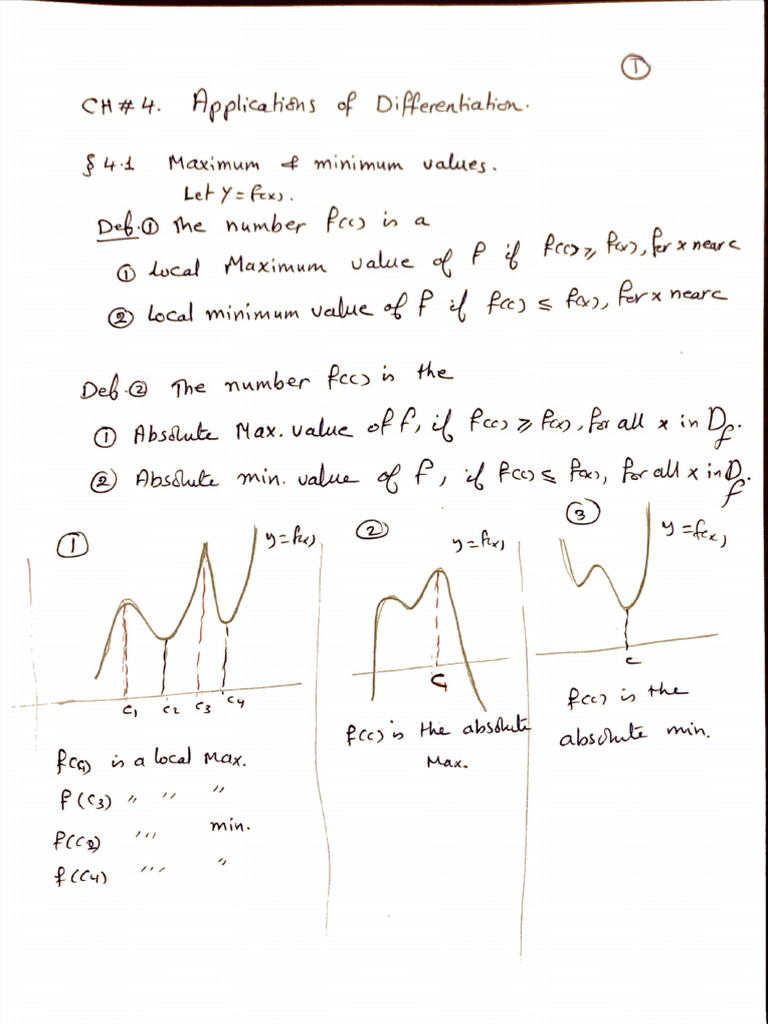 ①
CH # 4. Applications of Differentiation.
§ 4.1 Maximum & minimum values.
Let y = f(x).
Def.① The number f(c) is a
① Local Maximum value of f if f(c) ≥ f(x), for x near c
② Local minimum value of f if f(c) ≤ f(x), for x near c
Def.② The number f(c) is the
① Absolute Max. value of f, if f(c) ≥ f(x), for all x in D_f.
② Absolute min. value of f, if f(c) ≤ f(x), for all x in D_f.
① y = f(x)
c₁ c₂ c₃ c₄
f(c₁) is a local Max.
f(c₃) " " "
f(c₂) ''' min.
f(c₄) ''' "
② y = f(x)
c₁
f(c) is the absolute
Max.
③ y = f(x)
c
f(c) is the
absolute min.